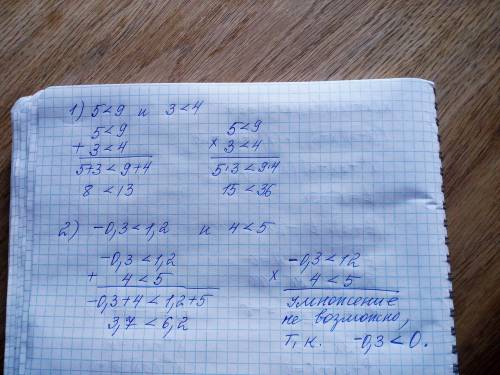 1) 5<9 и 3<4
5<9
+ 3<4
5+3<9+4
8<13
5<9
× 3<4
5·3<9·4
15<36
2) -0,3<1,2 и 4<5
-0,3<1,2
+ 4<5
-0,3+4<1,2+5
3,7<6,2
-0,3<12
× 4<5
Умножение
не возможно,
т, к. -0,3<0.